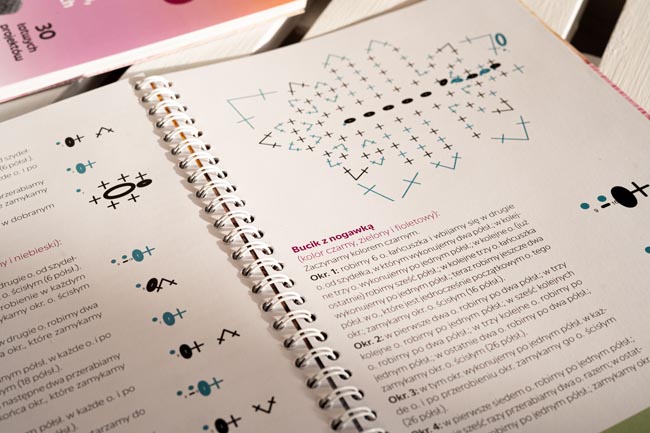 30
łatwych
projektów
o. i po
(6 półsł.).
przerabiamy
w dobranym
y i niebieski):
drugie o. od szydeł-
ne o. (6 półsł.).
robienie w każdym
rkamy o. ścisłym
drugie o. robimy dwa
a okr., które zamykamy
nym półsł. w każde o. i po
m (18 półsł.).
następne dwa przerabiamy
końca okr., które zamykamy
półsł. w każde o. i po
tarzamy do
0
Bucik z nogawką
(kolor czarny, zielony i fioletowy):
Zaczynamy kolorem czarnym.
Okr. 1: robimy 6 o. łańcuszka i wbijamy się w drugie
o. od szydełka, w którym wykonujemy dwa półsł.; w kolej-
ne trzy o. wykonujemy po jednym półsł.; w kolejne o. (już
ostatnie) robimy sześć półsł., w kolejne trzy o. łańcuszka
wykonujemy po jednym półsł.; teraz robimy jeszcze dwa
półsł. w o., które jest jednocześnie początkowym o. tego
okr.; zamykamy okr. o. ścisłym (16 półsł.).
Okr. 2: w pierwsze dwa o. robimy po dwa półsł.; w trzy
kolejne o. robimy po jednym półsł.; w sześć kolejnych
o. robimy po dwa półsł.; w trzy kolejne o. robimy po
jednym półsł., w ostatnie dwa o. robimy po dwa półsł.;
zamykamy okr. o. ścisłym (26 półsł.).
Okr. 3: w tym okr. wykonujemy po jednym półsł. w każ-
de o. i po przerobieniu okr. zamykamy go o. ścisłym
(26 półsł.).
Okr. 4: w pierwsze siedem o. robimy po jednym półsł.;
sześć razy przerabiamy dwa o. razem; w ostat-
robimy po jednym półsł., zamykamy okr.